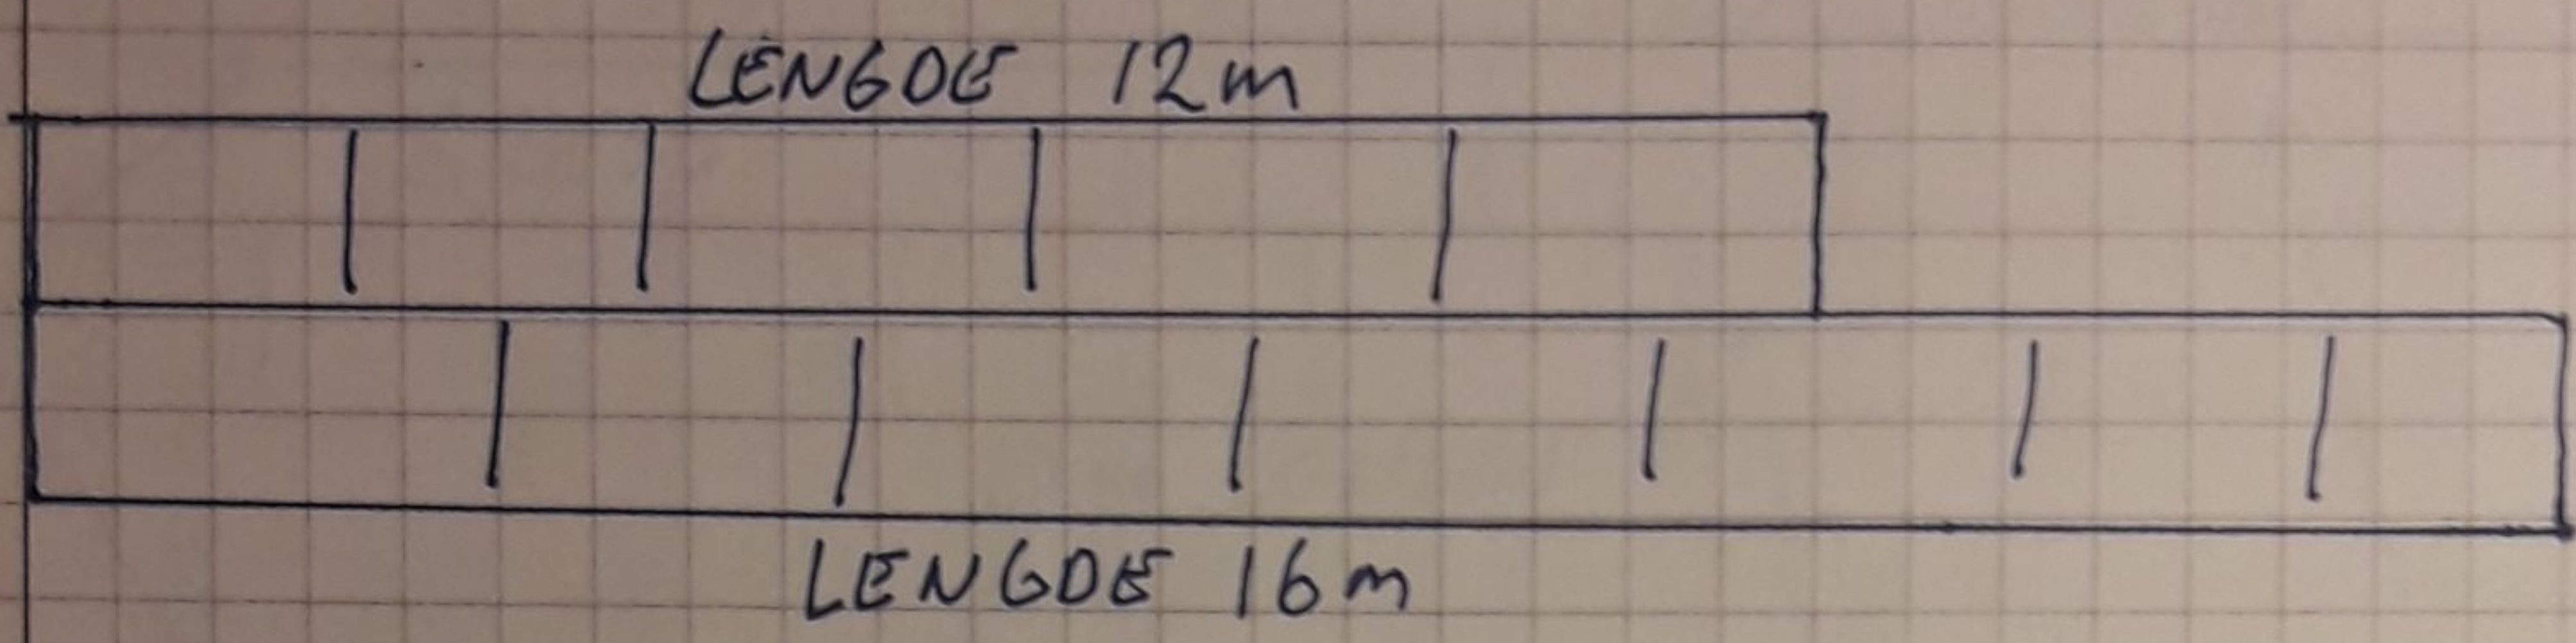 LENGDE 12m
LENGDE 16m